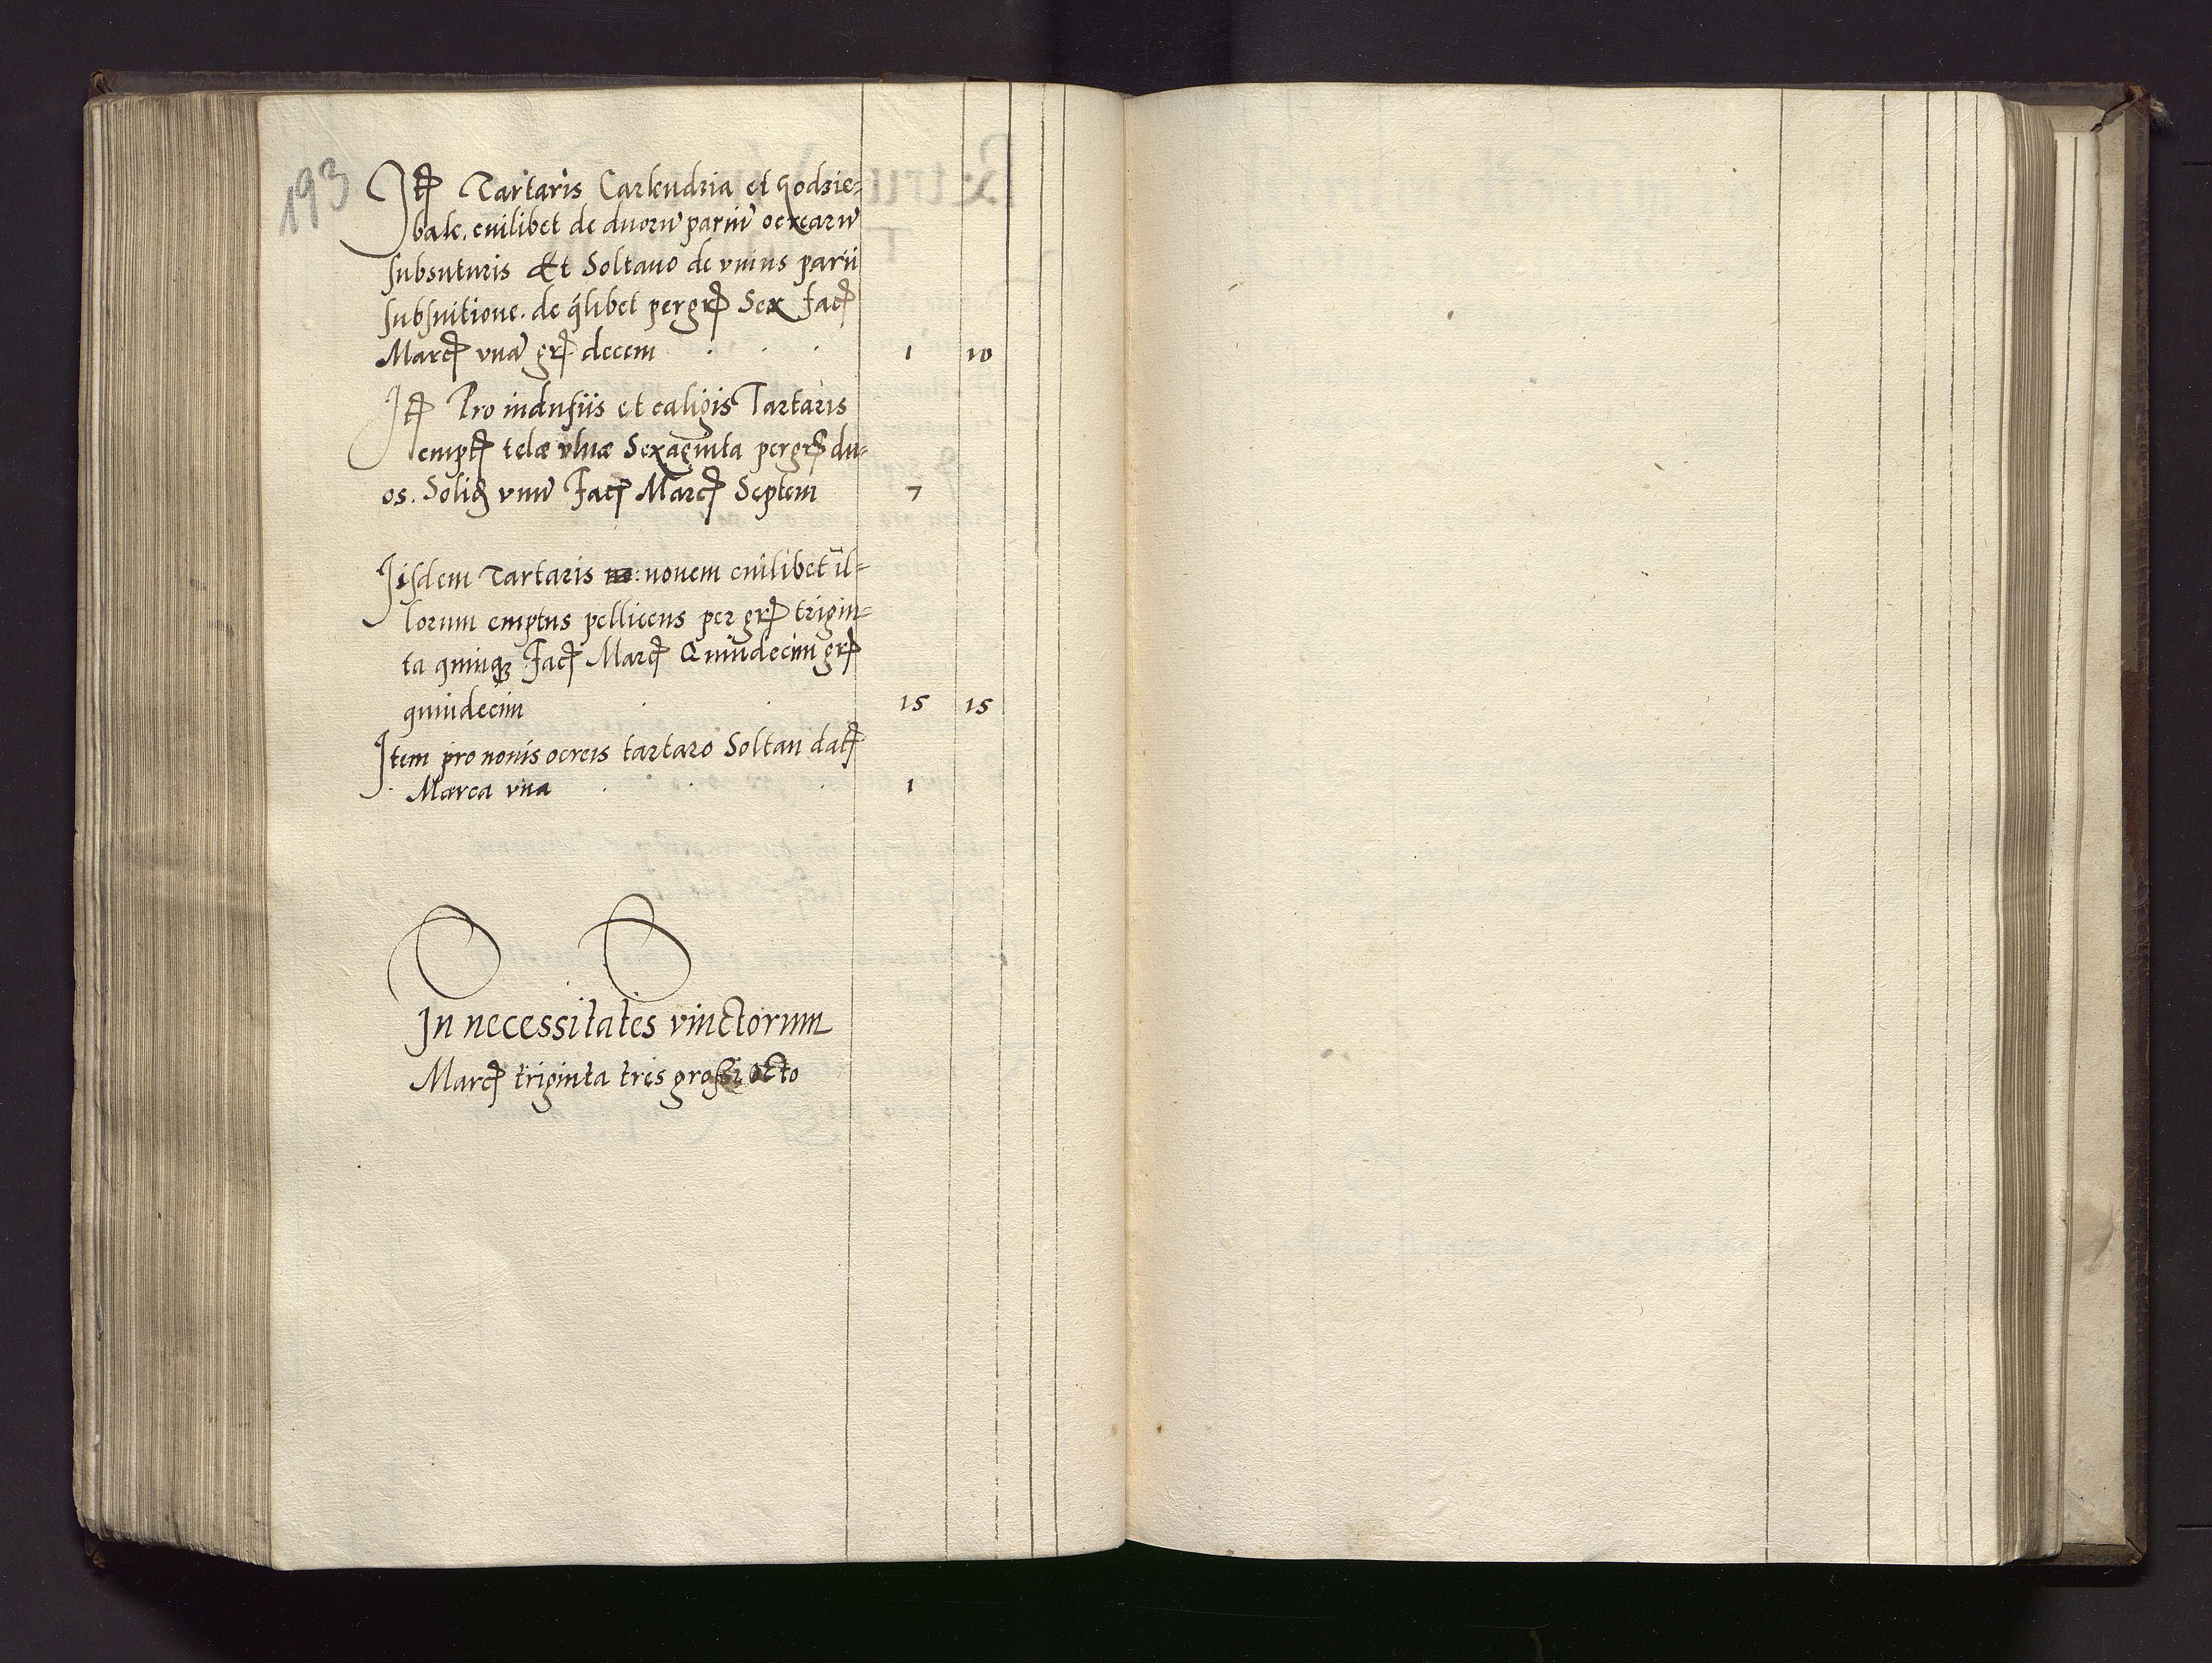 193
Itꝫ Tartaris Carkudzia et Godzie=
bale. cuilibet de duorū pariū ocrearū
subsuturis Et Soltano de vnius parii
subsuitione. de qlibet per grꝭ Sex facꝭ
Marcꝭ vna grꝭ decem . . . 1 10
Itꝫ Pro indusiis et caligis Tartaris
emptꝭ telæ vlnæ Sexaginta per grꝭ du=
os. Solidꝭ vnū Facꝭ Marcꝭ Septem 7
Iisdem Tartaris no: novem cuilibet il=
lorum emptus pelliceus per grꝭ trigin=
ta quinqꝫ Facꝭ Marcꝭ Quindecim grꝭ
quindecim . . 15 15
Item pro novis ocreis tartaro Soltan datꝭ
Marca vna . . . 1
In necessitates vinctorum
Marcꝭ triginta tres grossi octo